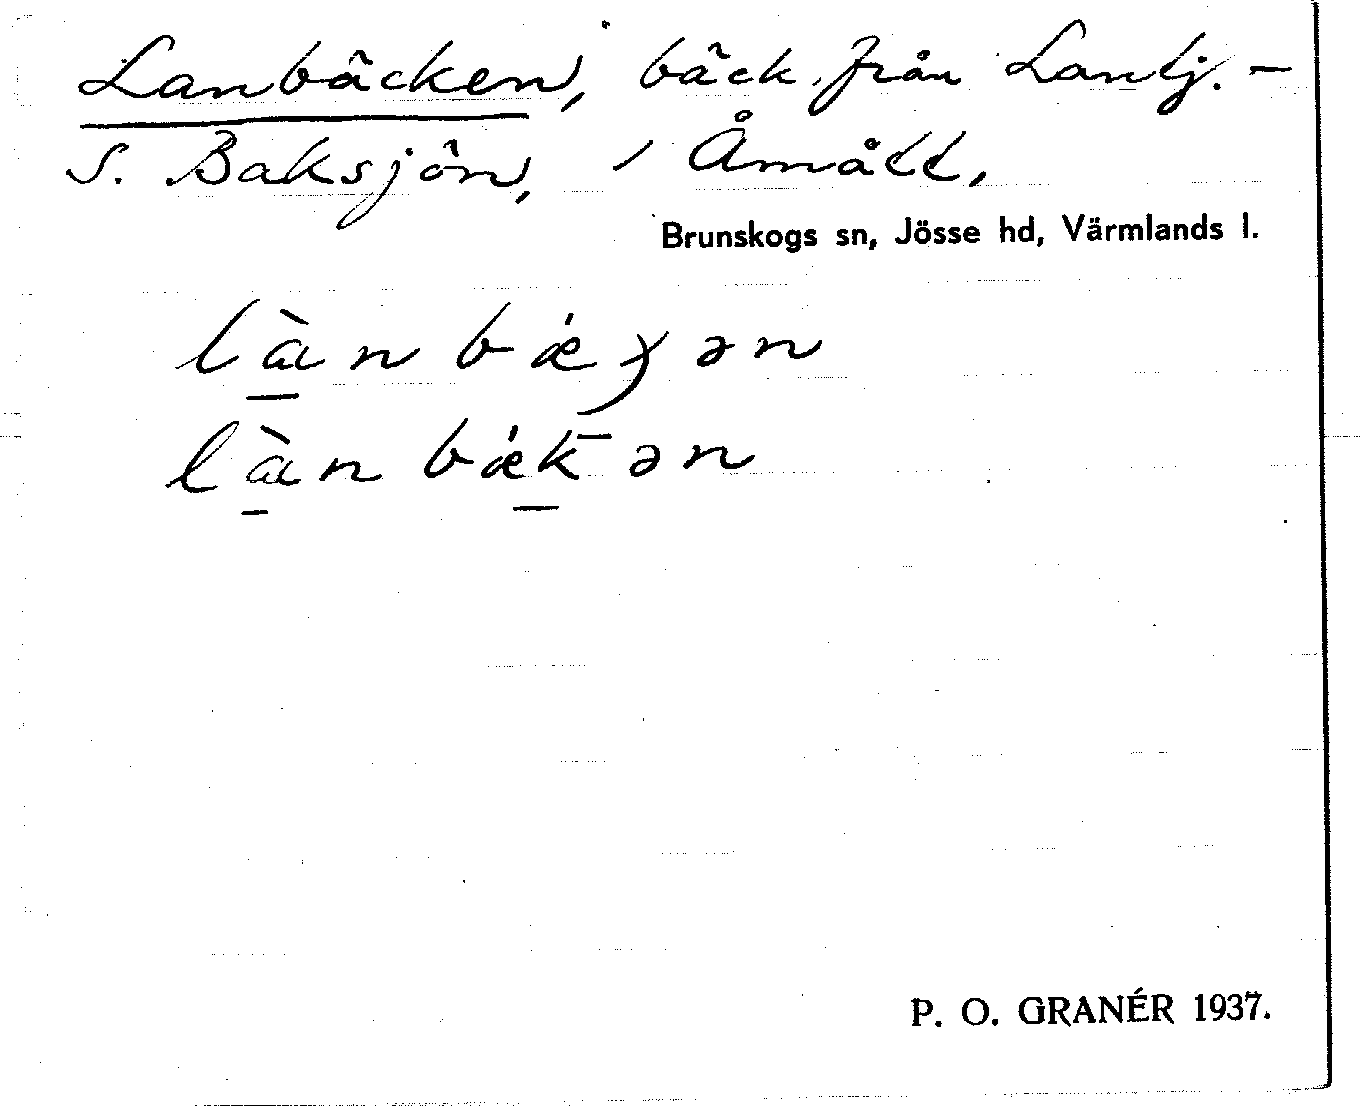 Lanbäcken, bäck från Lantj. -
S. Baksjön, i Åmått,
Brunskogs sn, Jösse hd, Värmlands l.
lànbǽχən
lànbǽk̄ən
P. O. GRANÉR 1937.